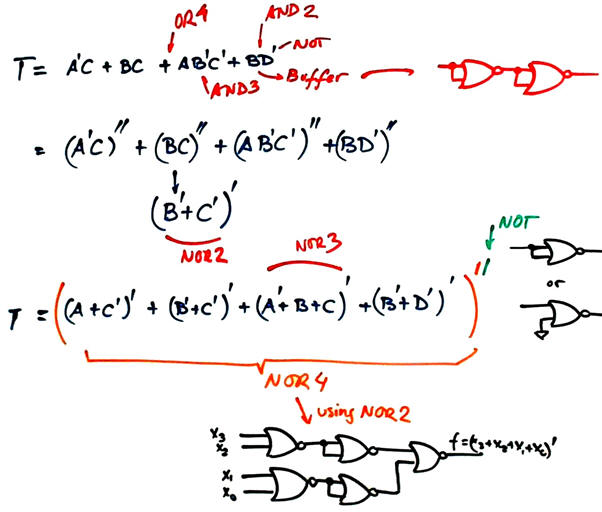 OR4 AND2
T = A'C + BC + AB'C' + BD' NOT
AND3 Buffer
= (A'C)'' + (BC)'' + (AB'C')'' + (BD')''
(B'+C')'
NOR2 NOR3 NOT
T = ((A+C')' + (B'+C')' + (A'+B+C)' + (B'+D')')''
or
NOR4
using NOR2
x3
x2
f=(x3+x2+x1+x0)'
x1
x0